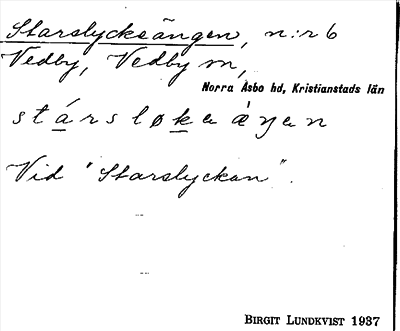 Starslycksängen, n:r 6
Vedby, Vedby m,
Norra Åsbo hd, Kristianstads län
stársløkaäŋen
Vid "Starslyckan".
BIRGIT LUNDKVIST 1937